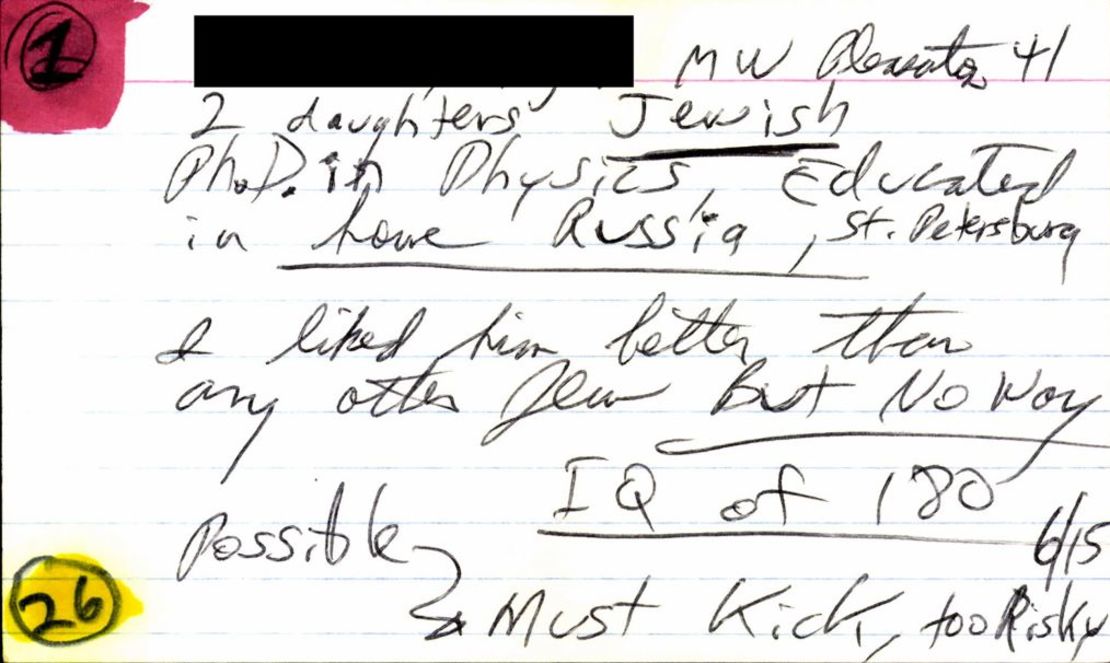 1
MW Pleasanton 41
2 daughters Jewish
Ph.D. in Physics, Educated
in home Russia, St. Petersburg
I liked him better than
any other Jew But No Way
IQ of 180
Possible
6/15
26
& Must Kick, too Risky